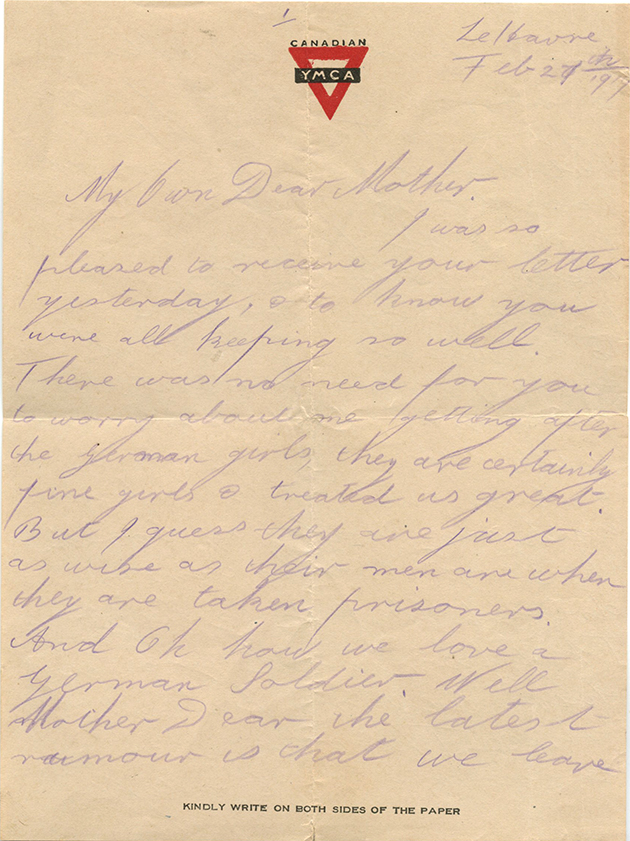 1
CANADIAN
YMCA
Le Havre
Feb 27th/19
My Own Dear Mother.
I was so
pleased to receive your letter
yesterday, & to know you
were all keeping so well.
There was no need for you
to worry about me getting after
the German girls, they are certainly
fine girls & treated us great.
But I guess they are just
as wise as their men are when
they are taken prisoners.
And Oh how we love a
German Soldier. Well
Mother Dear the latest
rumour is that we leave
KINDLY WRITE ON BOTH SIDES OF THE PAPER